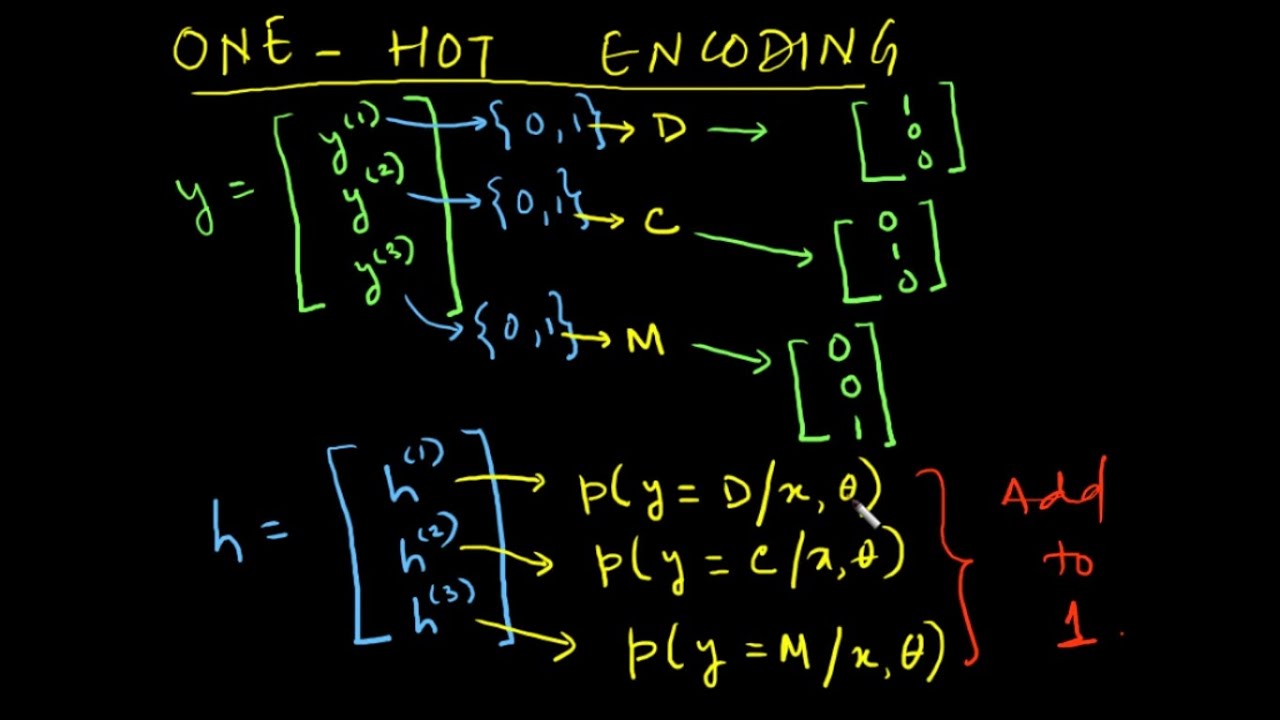 ONE - HOT ENCODING
y⁽¹⁾ → {0,1} → D → [1 0 0]
y = [y⁽¹⁾ y⁽²⁾ y⁽³⁾]
y⁽²⁾ → {0,1} → C → [0 1 0]
y⁽³⁾ → {0,1} → M → [0 0 1]
h = [h⁽¹⁾ h⁽²⁾ h⁽³⁾]
h⁽¹⁾ → p(y = D/x, θ)
h⁽²⁾ → p(y = C/x, θ)
h⁽³⁾ → p(y = M/x, θ)
Add
to
1.